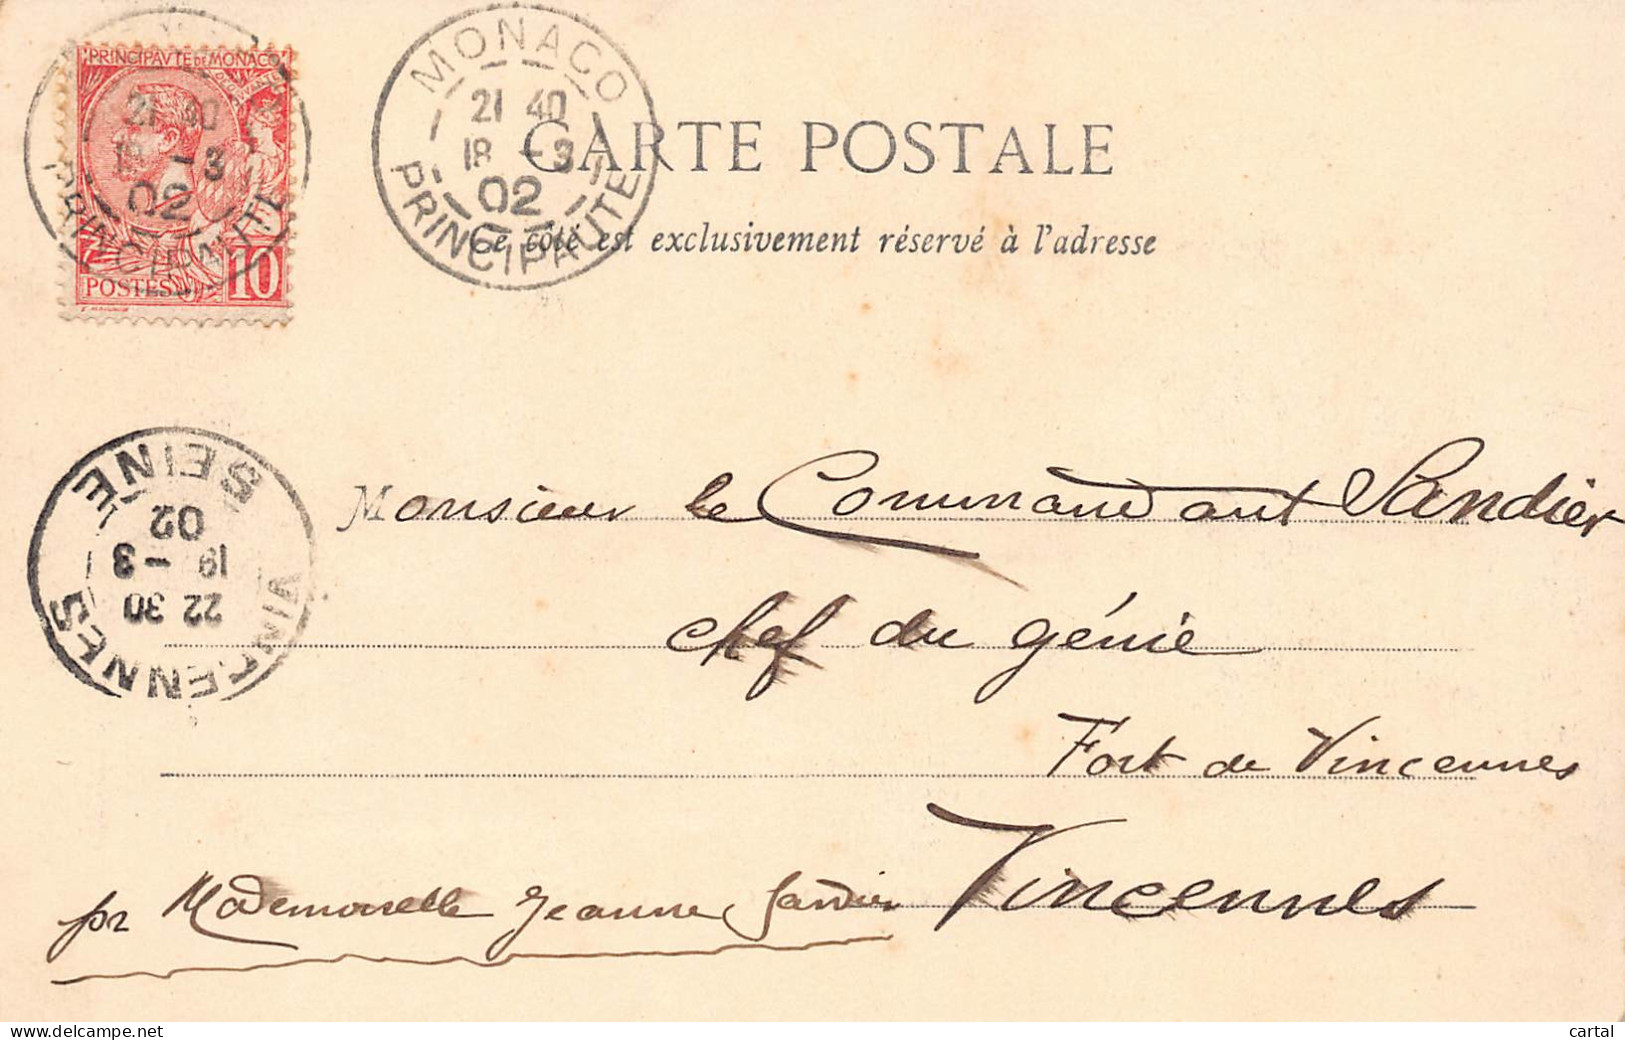 PRINCIPAVTE DE MONACO
POSTES 10
MONACO
21 40
18 -3
02
PRINCIPAUTE
MONACO
21 40
18 -3
02
PRINCIPAUTE
CARTE POSTALE
Ce côté est exclusivement réservé à l'adresse
VINCENNES
22 30
19 -3
02
SEINE
Monsieur le Commandant Sandier
chef du génie
Fort de Vincennes
Vincennes
pr Mademoiselle Jeanne Sandier
www.delcampe.net
cartal